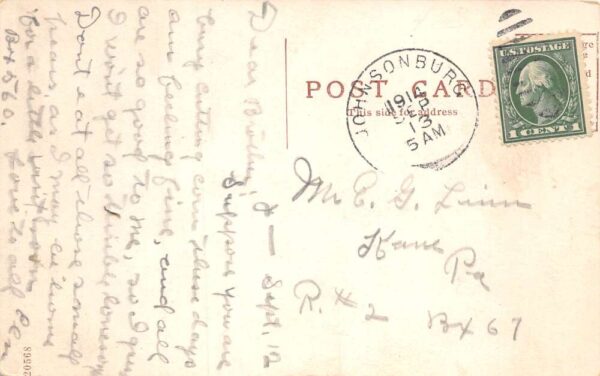 POST CARD
This side for address
JOHNSONBURG
1914
SEP
13
5 AM
U.S. POSTAGE
1 CENT 1
Mr E. G. Linn
Kane
Pa
R. #2 Bx 67
Sept. 12
Dear Brother,
Suppose you are
busy cutting corn these days
am feeling fine, and all
are so good to me, so I guess
I won't get so terrible lonesome
Don't eat all those small
pears, as I may come home
for a little
Love to all
Bx 560.
20568